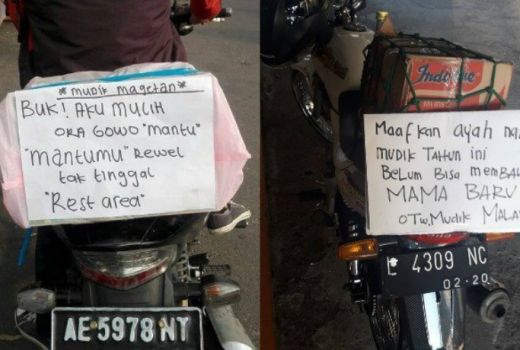 * mudik magetan *
BUK! AKU MULIH
ORA GOWO "mantu"
"mantumu" Rewel
tak tinggal
"Rest area"
AE 5978 NT
Indo
Maafkan ayah
mudik Tahun ini
Belum Bisa
MAMA BARU
OTW. Mudik
L 4309 NC
02·20